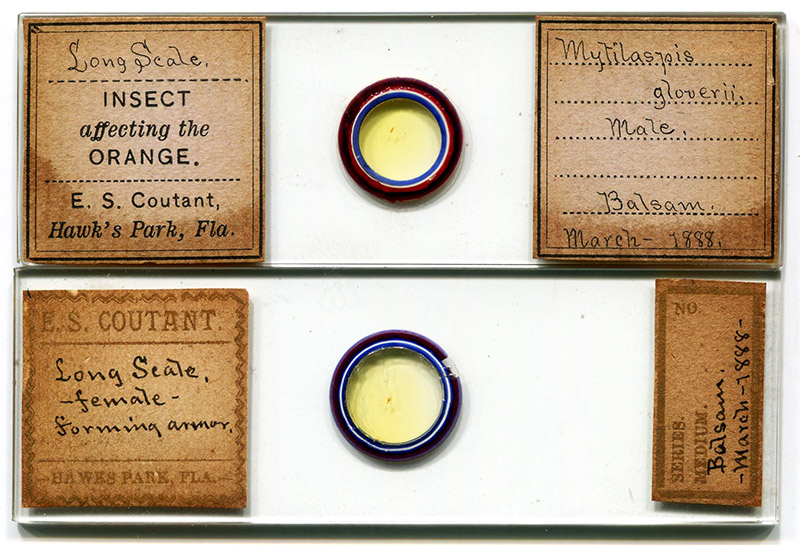 Long Scale.
INSECT
affecting the
ORANGE.
E. S. Coutant,
Hawk's Park, Fla.
Mytilaspis
gloverii.
Male.
Balsam.
March - 1888.
E. S. COUTANT.
Long Scale,
- female -
forming armor.
-HAWKS PARK, FLA.-
NO.
SERIES.
MEDIUM.
Balsam.
-March-1888-